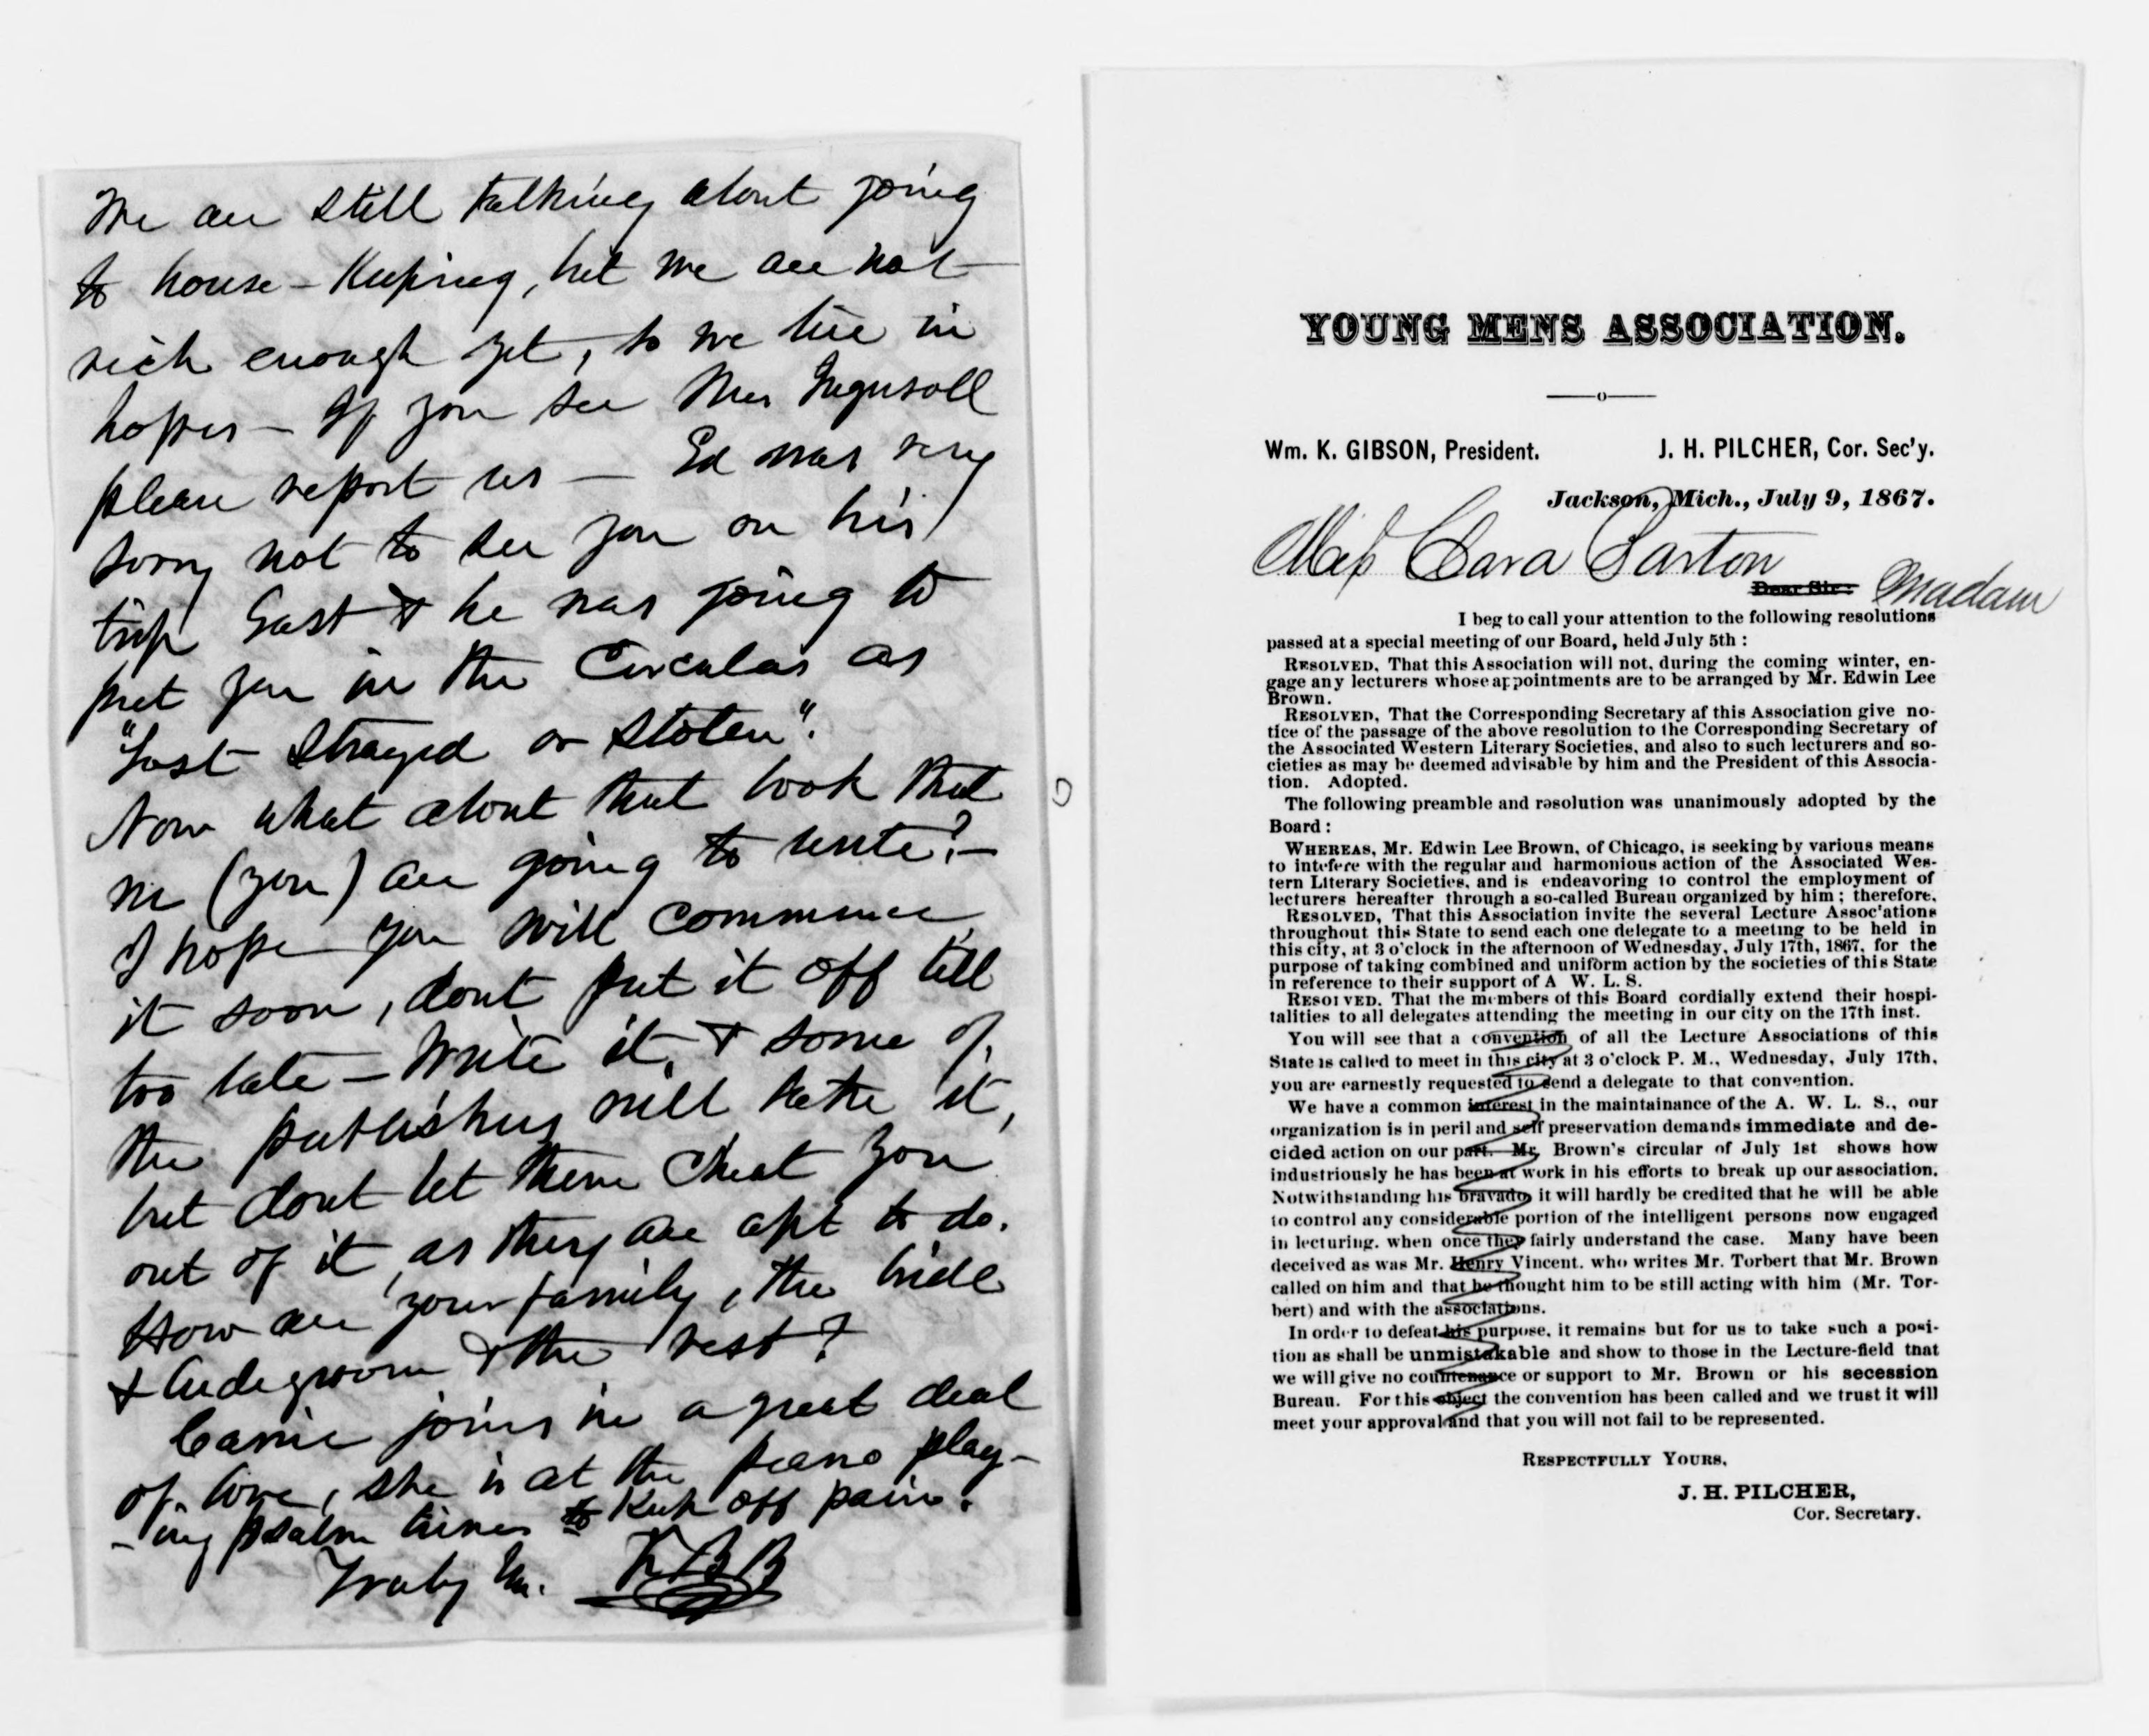 We are still talking about going
to house-keeping, but we are not
rich enough yet, so we live in
hopes — If you see Mrs Ingersoll
please report us — Ed was very
sorry not to see you on his
trip East & he was going to
put you in the Circular as
"Lost Strayed or Stolen".
Now what about that book that
we (you) are going to write? —
I hope you will commence
it soon, dont put it off till
too late — Write it, & some of
the publishers will take it,
but dont let them cheat you
out of it, as they are apt to do.
How are your family, the bride
& bridegroom & the rest?
Carrie joins in a great deal
of love, she is at the piano play-
-ing psalm tunes to keep off pain.
Truly Yrs.
YOUNG MENS ASSOCIATION.
Wm. K. GIBSON, President. J. H. PILCHER, Cor. Sec'y.
Jackson, Mich., July 9, 1867.
Miss Clara Barton
Dear Sir: Madam
I beg to call your attention to the following resolutions
passed at a special meeting of our Board, held July 5th :
RESOLVED, That this Association will not, during the coming winter, en-
gage any lecturers whose appointments are to be arranged by Mr. Edwin Lee
Brown.
RESOLVED, That the Corresponding Secretary af this Association give no-
tice of the passage of the above resolution to the Corresponding Secretary of
the Associated Western Literary Societies, and also to such lecturers and so-
cieties as may be deemed advisable by him and the President of this Associa-
tion. Adopted.
The following preamble and resolution was unanimously adopted by the
Board :
WHEREAS, Mr. Edwin Lee Brown, of Chicago, is seeking by various means
to intefere with the regular and harmonious action of the Associated Wes-
tern Literary Societies, and is endeavoring to control the employment of
lecturers hereafter through a so-called Bureau organized by him ; therefore,
RESOLVED, That this Association invite the several Lecture Assoc'ations
throughout this State to send each one delegate to a meeting to be held in
this city, at 3 o'clock in the afternoon of Wednesday, July 17th, 1867, for the
purpose of taking combined and uniform action by the societies of this State
in reference to their support of A W. L. S.
RESOLVED, That the members of this Board cordially extend their hospi-
talities to all delegates attending the meeting in our city on the 17th inst.
You will see that a convention of all the Lecture Associations of this
State is called to meet in this city at 3 o'clock P. M., Wednesday, July 17th,
you are earnestly requested to send a delegate to that convention.
We have a common interest in the maintainance of the A. W. L. S., our
organization is in peril and self preservation demands immediate and de-
cided action on our part. Mr. Brown's circular of July 1st shows how
industriously he has been at work in his efforts to break up our association.
Notwithstanding his bravado, it will hardly be credited that he will be able
to control any considerable portion of the intelligent persons now engaged
in lecturing, when once they fairly understand the case. Many have been
deceived as was Mr. Henry Vincent, who writes Mr. Torbert that Mr. Brown
called on him and that he thought him to be still acting with him (Mr. Tor-
bert) and with the associations.
In order to defeat his purpose, it remains but for us to take such a posi-
tion as shall be unmistakable and show to those in the Lecture-field that
we will give no countenance or support to Mr. Brown or his secession
Bureau. For this object the convention has been called and we trust it will
meet your approval and that you will not fail to be represented.
RESPECTFULLY YOURS,
J. H. PILCHER,
Cor. Secretary.